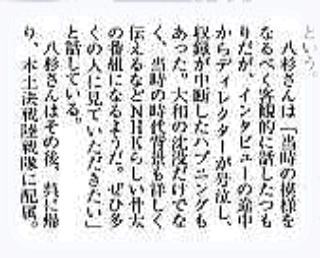 という。
　八杉さんは「当時の模様を
なるべく客観的に話したつも
りだが、インタビューの途中
からディレクターが号泣し、
収録が中断したハプニングも
あった。大和の沈没だけでな
く、当時の時代背景も詳しく
伝えるなどNHKらしい骨太
の番組になるようだ。ぜひ多
くの人に見ていただきたい」
と話している。
　八杉さんはその後、呉に帰
り、本土決戦陸戦隊に配属。